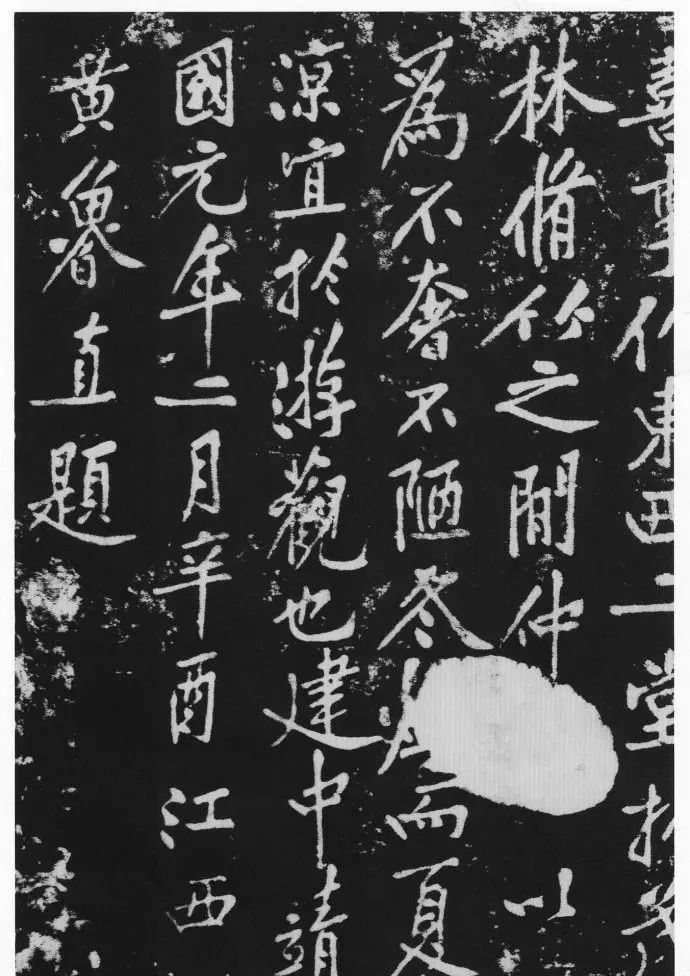 喜事作東西二堂於茂
林脩竹之間仲以
爲不奢不陋冬而夏
涼宜於游觀也建中靖
國元年二月辛酉江西
黄魯直題